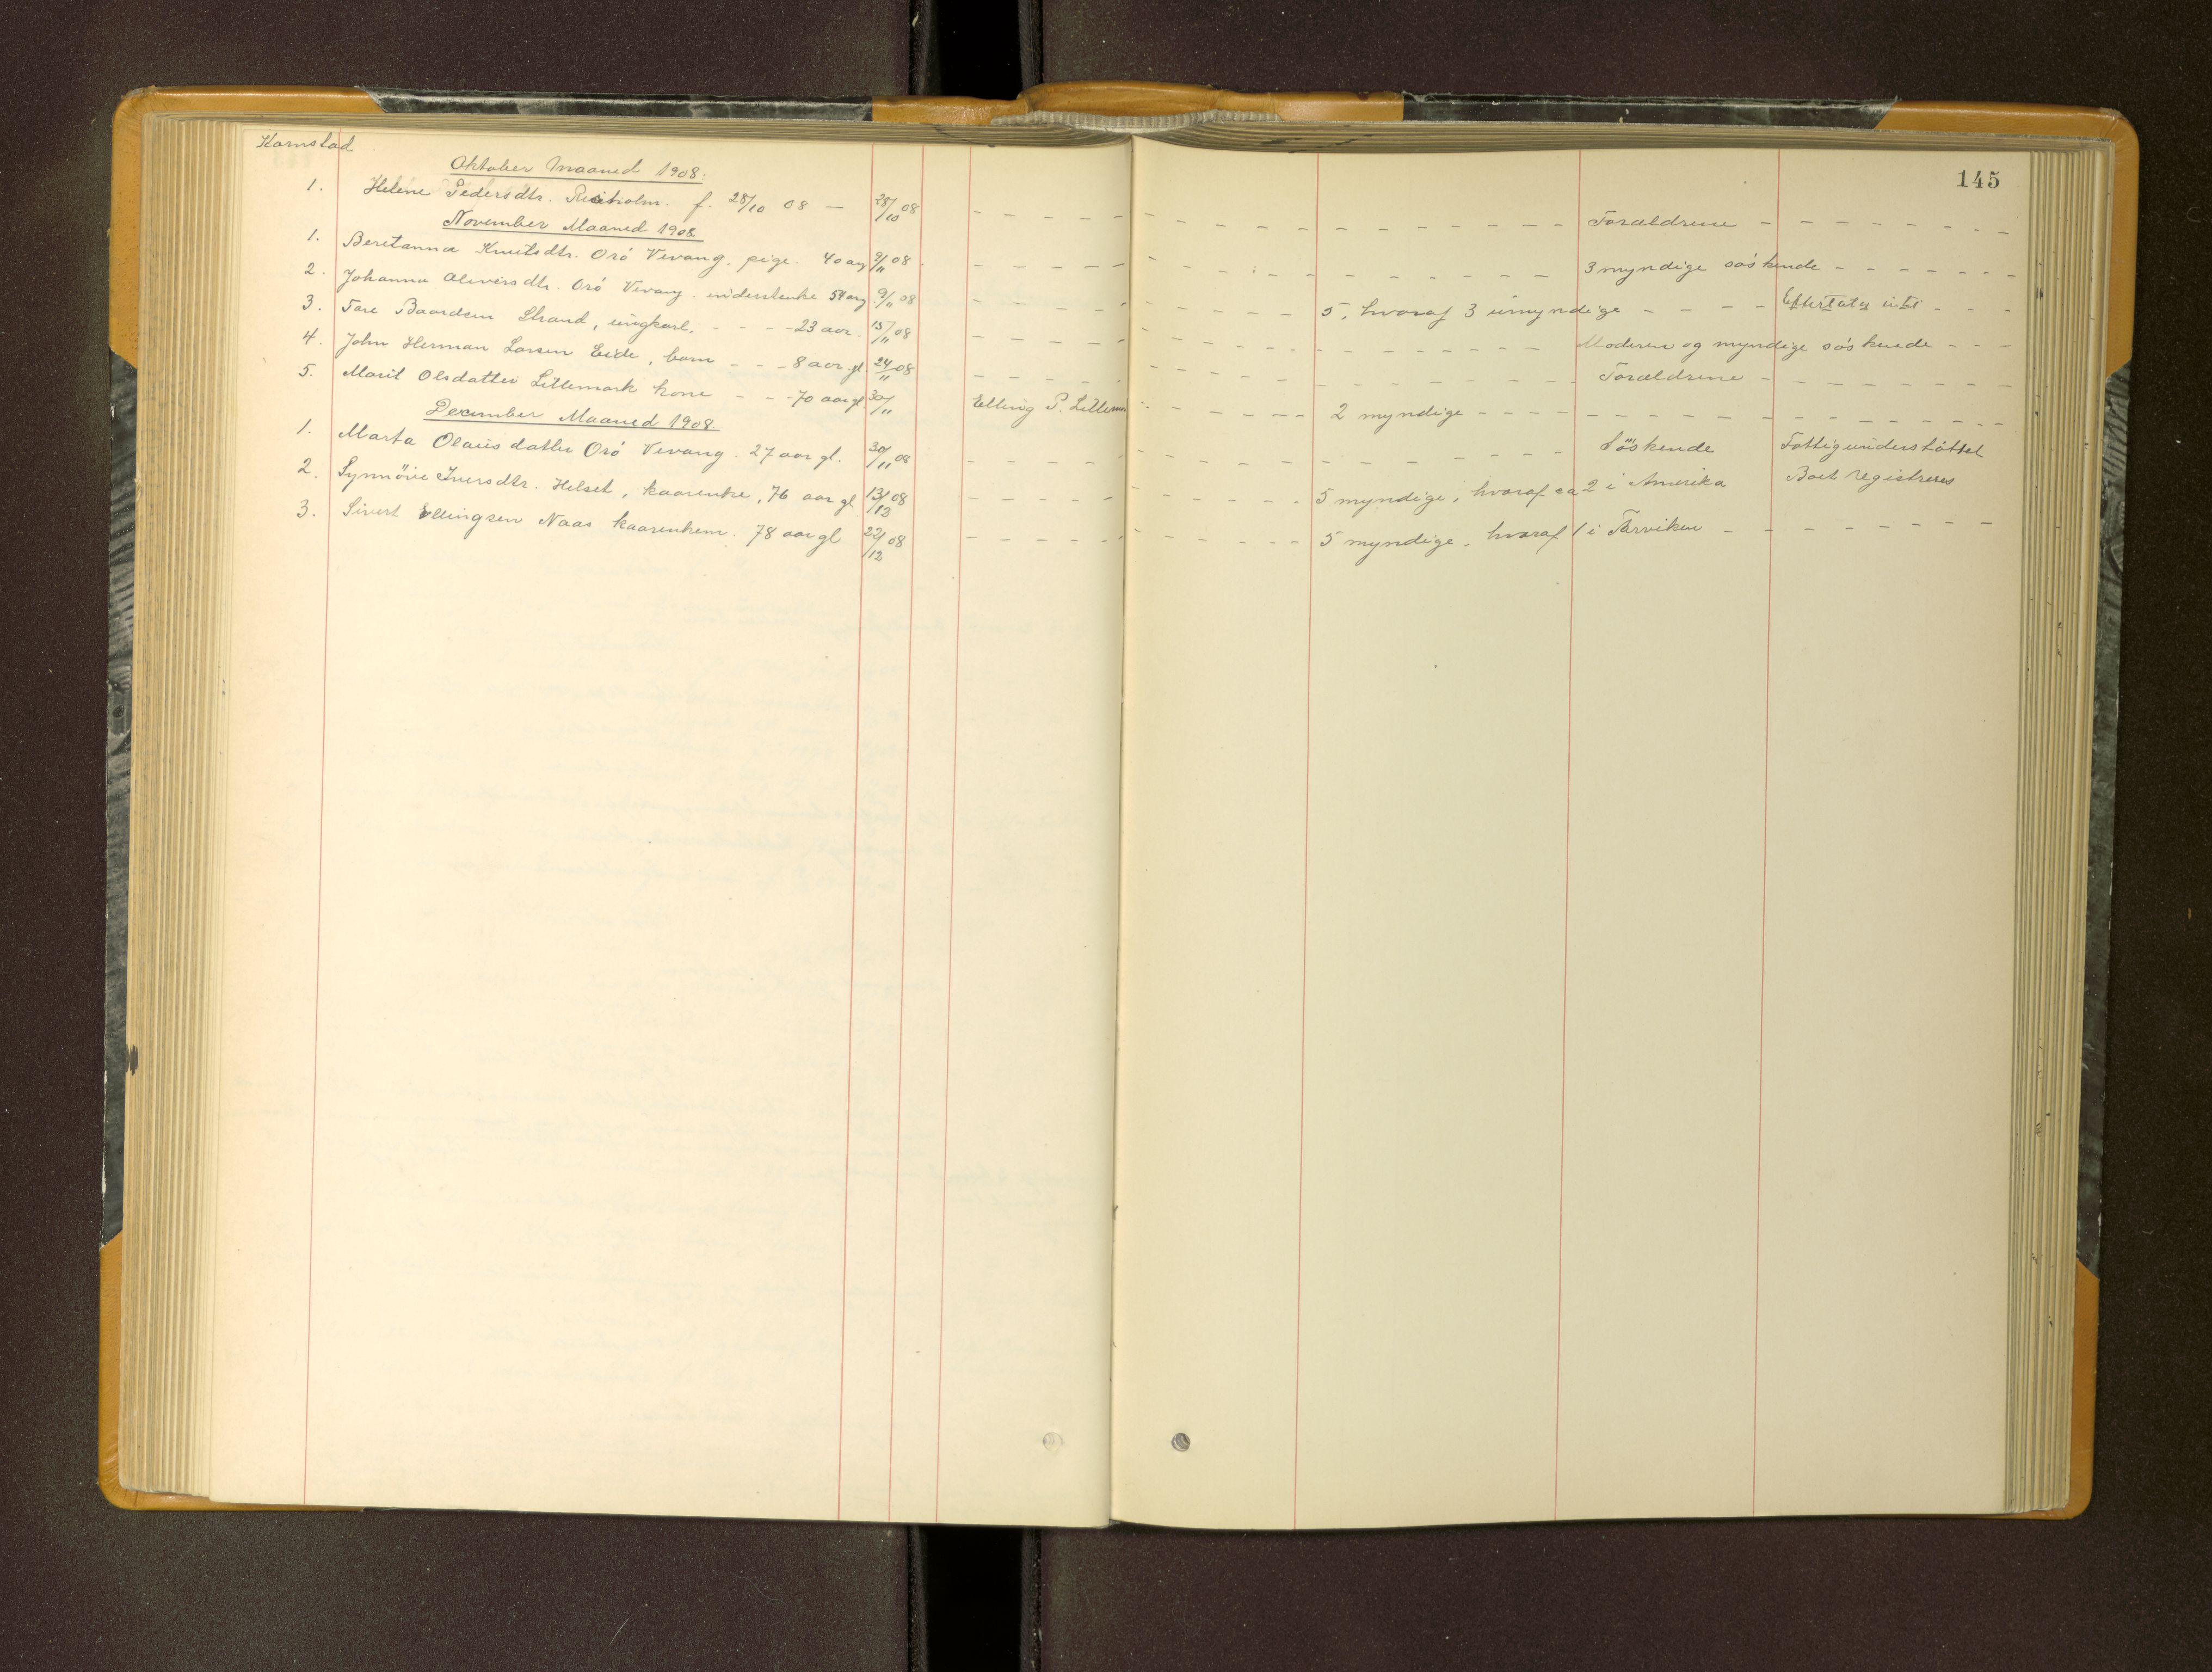 Kornstad
145
Oktober Maaned 1908.
1. Helene Pedersdtr. f. 28/10 08 — 28/10 08 Forældrene
November Maaned 1908.
1. Beretanna Knutsdtr. Orö Vevang. pige. 40 aar 9/11 08 3 myndige söskende
2. Johanna Oliversdtr. Orö Vevang. inderstenke 54 aar 9/11 08 5, hvoraf 3 umyndige Efterlatt intet
3. Tore Baardsen Strand, ungkarl, 23 aar. 15/11 08 Moderen og myndige söskende
4. John Herman Larsen Eide, barn 8 aar gl 24/11 08 Forældrene
5. Marit Olsdatter Lillemork kone 70 aar gl 30/11 Elling P. Lillem 2 myndige
December Maaned 1908
1. Marta Olausdatter Orö Vevang. 27 aar gl. 30/11 08 Söskende Fattigunderstöttet
2. Synnöve Iversdtr. Helset, kaarenke, 76 aar gl 13/12 08 5 myndige, hvoraf ca 2 i Amerika Boet registreres
3. Sivert Ellingsen Naas kaarenkem. 78 aar gl 22/12 08 5 myndige, hvoraf 1 i Tarviken